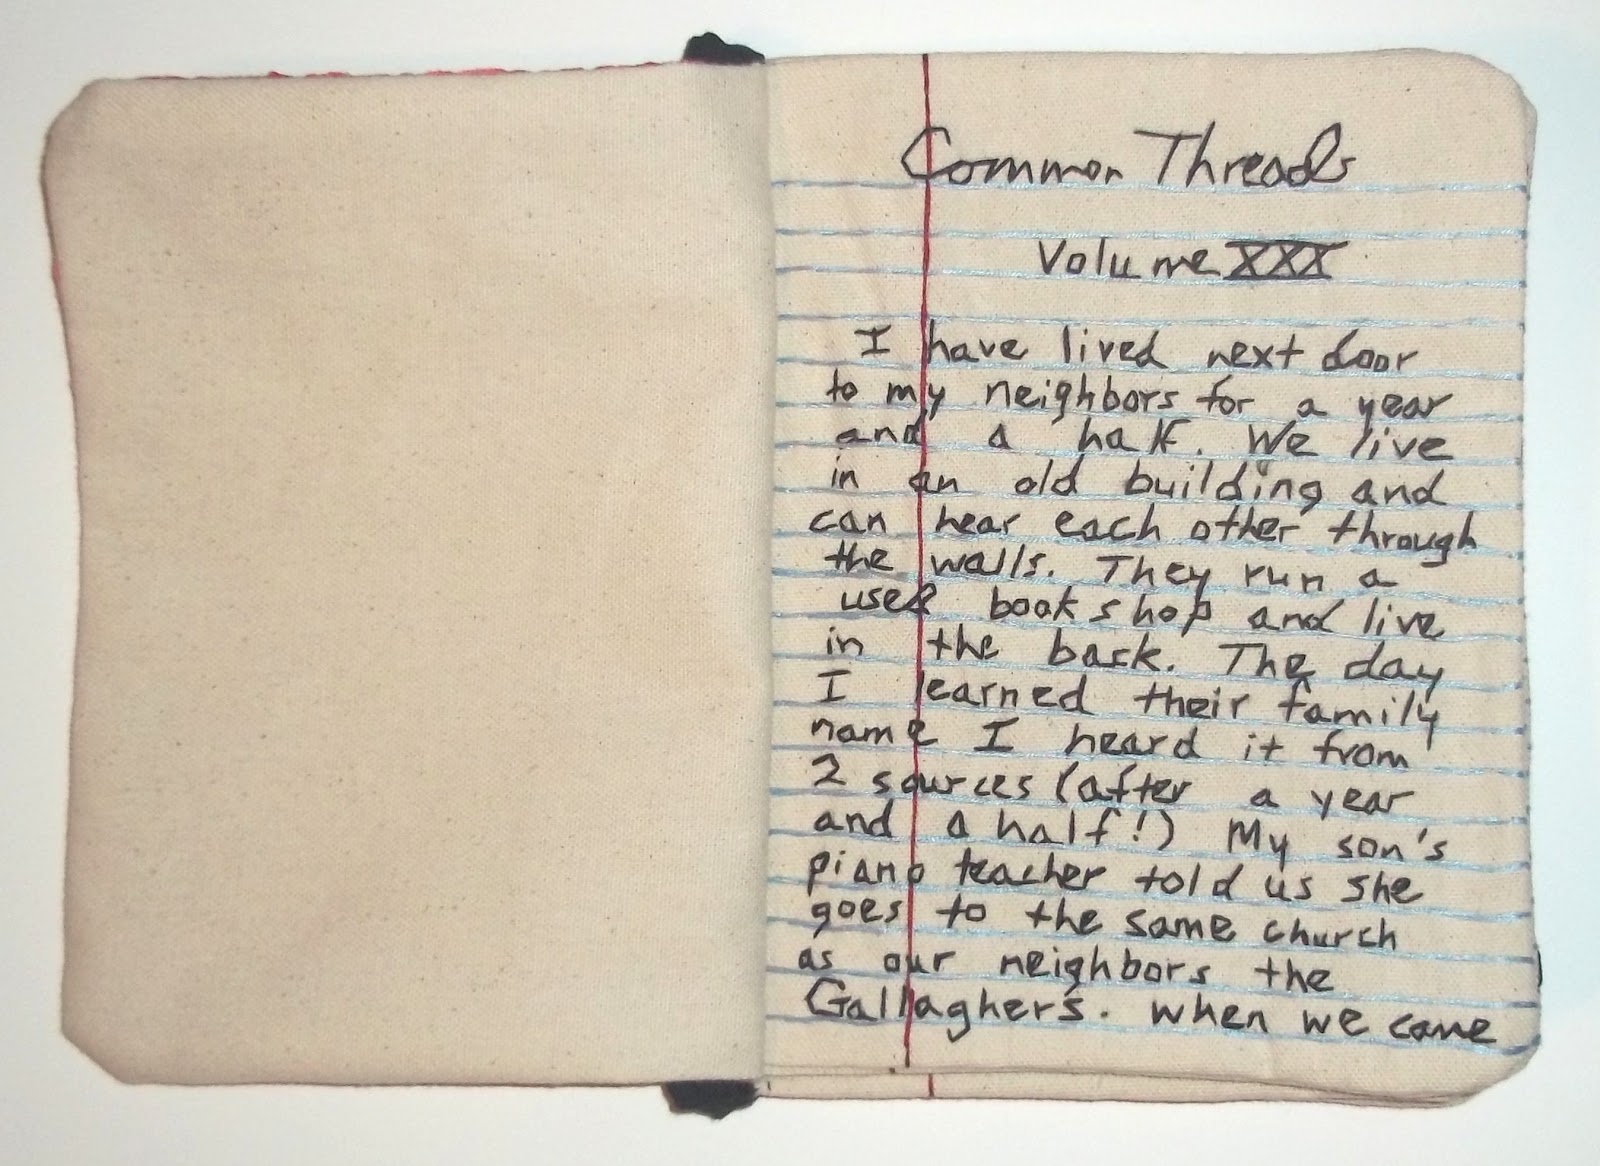 Common Threads
Volume XXX
I have lived next door
to my neighbors for a year
and a half. We live
in an old building and
can hear each other through
the walls. They run a
used book shop and live
in the back. The day
I learned their family
name I heard it from
2 sources (after a year
and a half!) My son's
piano teacher told us she
goes to the same church
as our neighbors the
Gallagher's. When we came